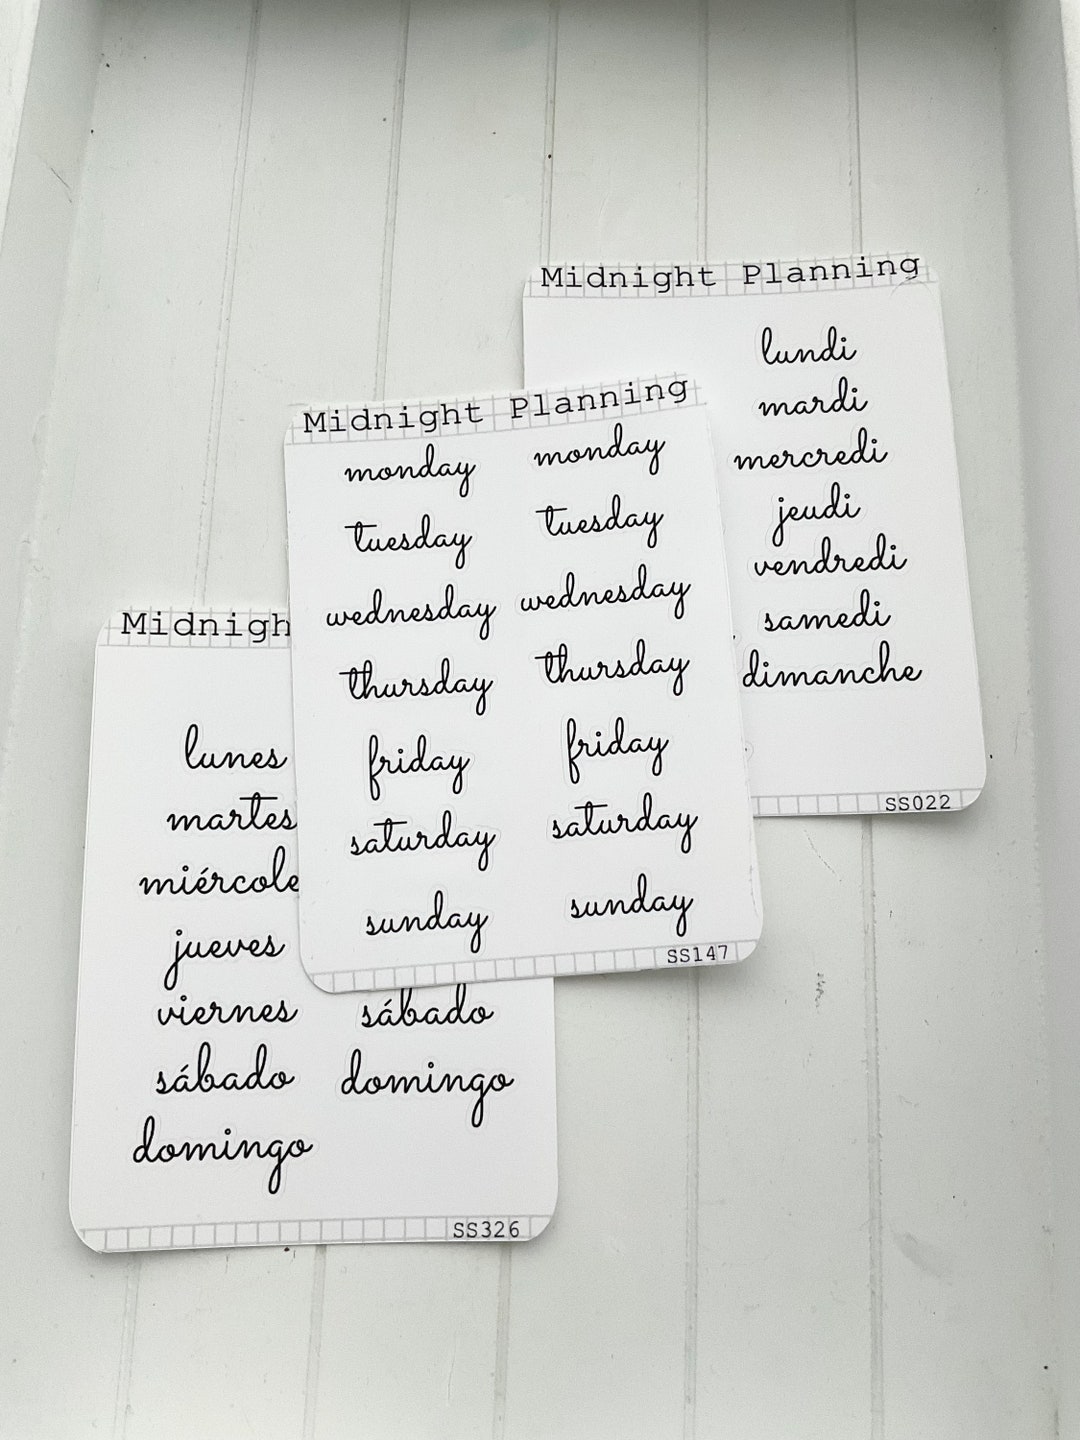 Midnight Planning
lundi
mardi
mercredi
jeudi
vendredi
samedi
dimanche
SS022
Midnight Planning
monday monday
tuesday tuesday
wednesday wednesday
thursday thursday
friday friday
saturday saturday
sunday sunday
SS147
Midnigh
lunes
martes
miércole
jueves
viernes sábado
sábado domingo
domingo
SS326